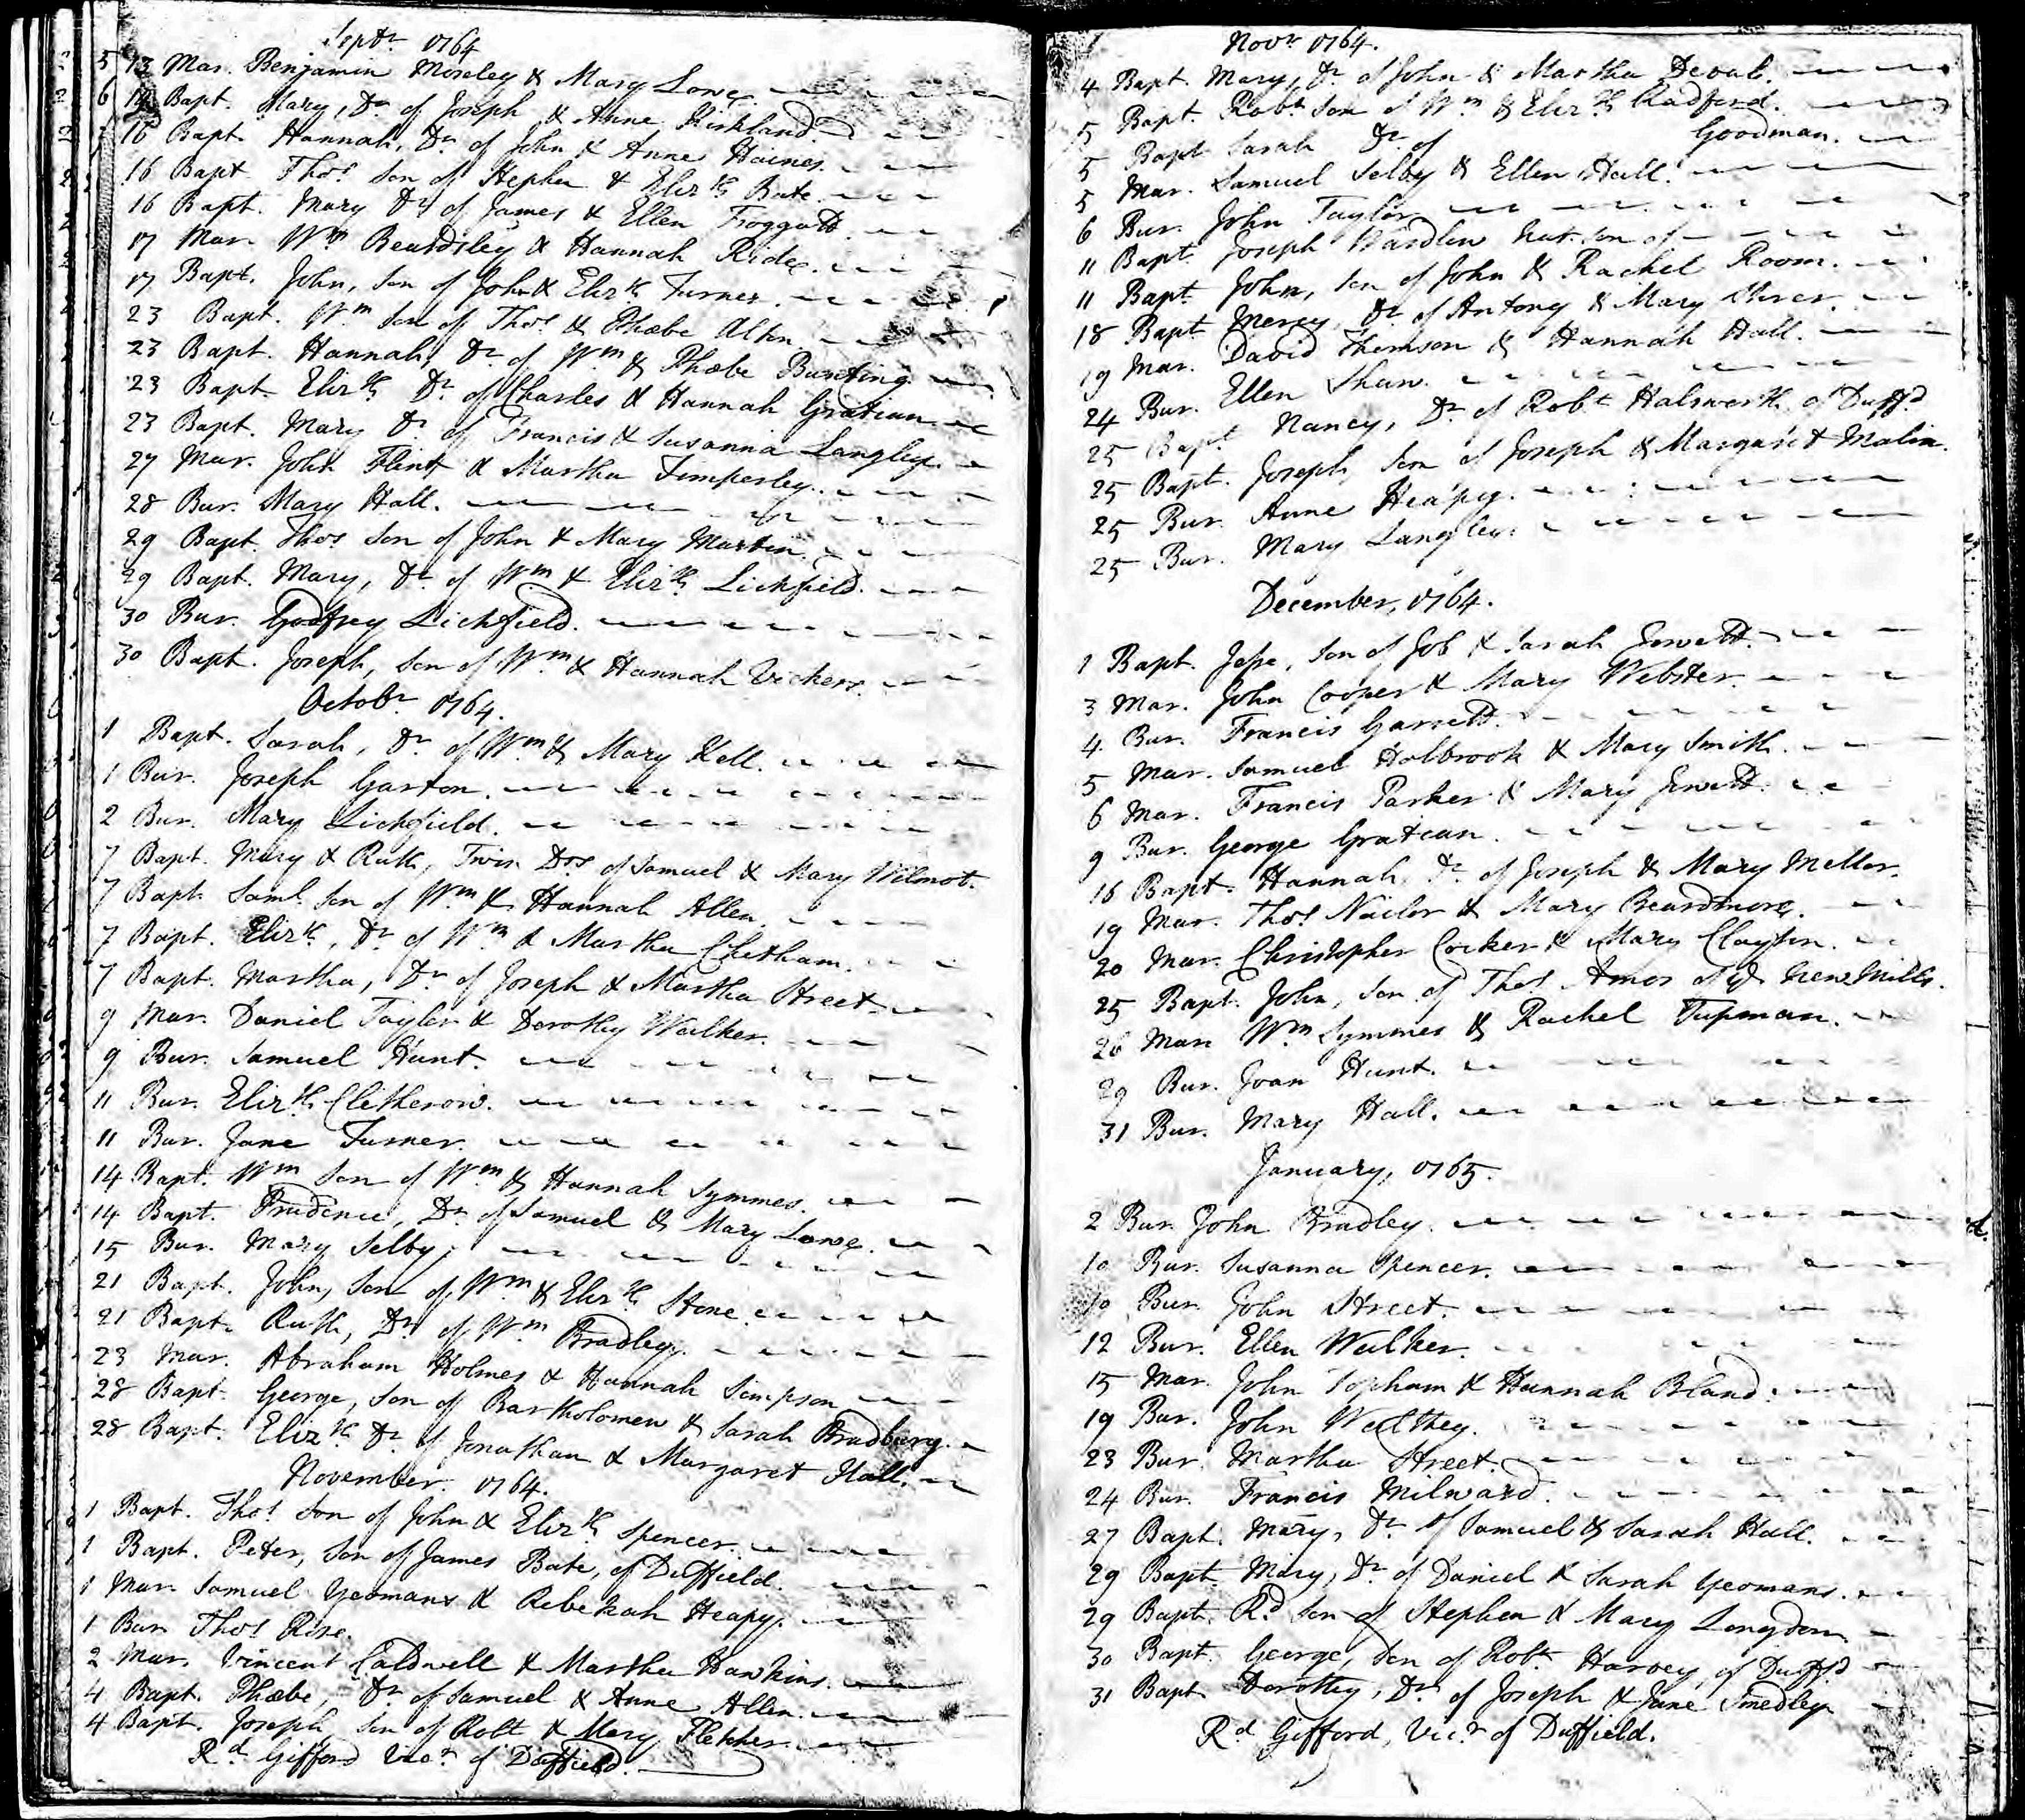 Septr 1764
13 Mar. Benjamin Moseley & Mary Lowe.
14 Bapt. Mary, Dr of Joseph & Anne Kirkland
16 Bapt. Hannah, Dr of John & Anne Haines.
16 Bapt. Thos Son of Stephen & Elizth Bate.
16 Bapt. Mary Dr of James & Ellen Froggatt.
17 Mar. Wm Beardsley & Hannah Ride.
17 Bapt. John, Son of John & Elizth Turner.
23 Bapt. Wm Son of Thos & Phœbe Alton.
23 Bapt. Hannah, Dr of Wm & Phœbe Bunting.
23 Bapt. Elizth Dr of Charles & Hannah Gratian
23 Bapt. Mary Dr of Francis & Susanna Langley.
27 Mar. John Flint & Martha Timperley.
28 Bur. Mary Hall.
29 Bapt. Thos Son of John & Mary Martin.
29 Bapt. Mary, Dr of Wm & Elizth Lichfield.
30 Bur. Godfrey Lichfield.
30 Bapt. Joseph, Son of Wm & Hannah Vickers.
Octobr 1764.
1 Bapt. Sarah, Dr of Wm & Mary Kell.
1 Bur. Joseph Garton.
2 Bur. Mary Lichfield.
7 Bapt. Mary & Ruth, Twin Drs of Samuel & Mary Wilmot.
7 Bapt. Saml Son of Wm & Hannah Allen
7 Bapt. Elizth, Dr of Wm & Martha Chetham.
7 Bapt. Martha, Dr of Joseph & Martha Street
9 Mar. Daniel Taylor & Dorothy Walker.
9 Bur. Samuel Hunt.
11 Bur. Elizth Clitherow.
11 Bur. Jane Turner.
14 Bapt. Wm Son of Wm & Hannah Symmes.
14 Bapt. Prudence, Dr of Samuel & Mary Lowe.
15 Bur. Mary Selby.
21 Bapt. John, Son of Wm & Elizth Stone.
21 Bapt. Ruth, Dr of Wm Bradley.
23 Mar. Abraham Holmes & Hannah Simpson
28 Bapt. George, Son of Bartholomew & Sarah Bradbury.
28 Bapt. Elizth Dr of Jonathan & Margaret Hall.
November. 1764.
1 Bapt. Thos Son of John & Elizth Spencer.
1 Bapt. Peter, Son of James Bate, of Duffield.
1 Mar. Samuel Yeomans & Rebekah Heapy.
1 Bur. Thos Rise.
2 Mar. Vincent Caldwell & Martha Hawkins.
4 Bapt. Phœbe, Dr of Samuel & Anne Allen.
4 Bapt. Joseph Son of Robt & Mary Fletcher.
Rd Gifford Vicr of Duffield.
Novr 1764.
4 Bapt. Mary, Dr of John & Martha Deval.
5 Bapt. Robt Son of Wm & Elizth Radford.
5 Bapt. Sarah Dr of Goodman.
5 Mar. Samuel Selby & Ellen Hall.
6 Bur. John Taylor
11 Bapt. Joseph Wardlow nat. son of
11 Bapt. John, Son of John & Rachel Room.
18 Bapt. Mercy Dr of Antony & Mary
19 Mar. David Thomson & Hannah Hall.
24 Bur. Ellen Shaw.
25 Bapt. Nancy, Dr of Robt Halsworth of Duffd
25 Bapt. Joseph, Son of Joseph & Margaret Malin.
25 Bur. Anne Heapy.
25 Bur. Mary Langley.
December, 1764.
1 Bapt. Jesse, Son of Job & Sarah Jewett.
3 Mar. John Cooper & Mary Webster.
4 Bur. Francis Garrett.
5 Mar. Samuel Holbrook & Mary Smith.
6 Mar. Francis Parker & Mary Jewett.
9 Bur. George Gratian.
16 Bapt. Hannah, Dr of Joseph & Mary Mellor.
19 Mar. Thos Naylor & Mary Beardmore.
20 Mar. Christopher Cocker & Mary Clayton.
25 Bapt. John, Son of Thos Amos of ye New Mills.
26 Mar. Wm Symmes & Rachel Tupman.
29 Bur. Joan Hunt.
31 Bur. Mary Hall.
January, 1765.
2 Bur. John Bradley.
10 Bur. Susanna Spencer.
10 Bur. John Street.
12 Bur. Ellen Walker.
15 Mar. John Topham & Hannah Bland.
19 Bur. John Walthey.
23 Bur. Martha Street.
24 Bur. Francis Milward.
27 Bapt. Mary, Dr of Samuel & Sarah Hall.
29 Bapt. Mary, Dr of Daniel & Sarah Yeomans.
29 Bapt. Rd Son of Stephen & Mary Longdon
30 Bapt. George, Son of Robt Harvey, of Duffd
31 Bapt. Dorothy, Dr of Joseph & Jane Smedley
Rd Gifford, Vicr of Duffield.